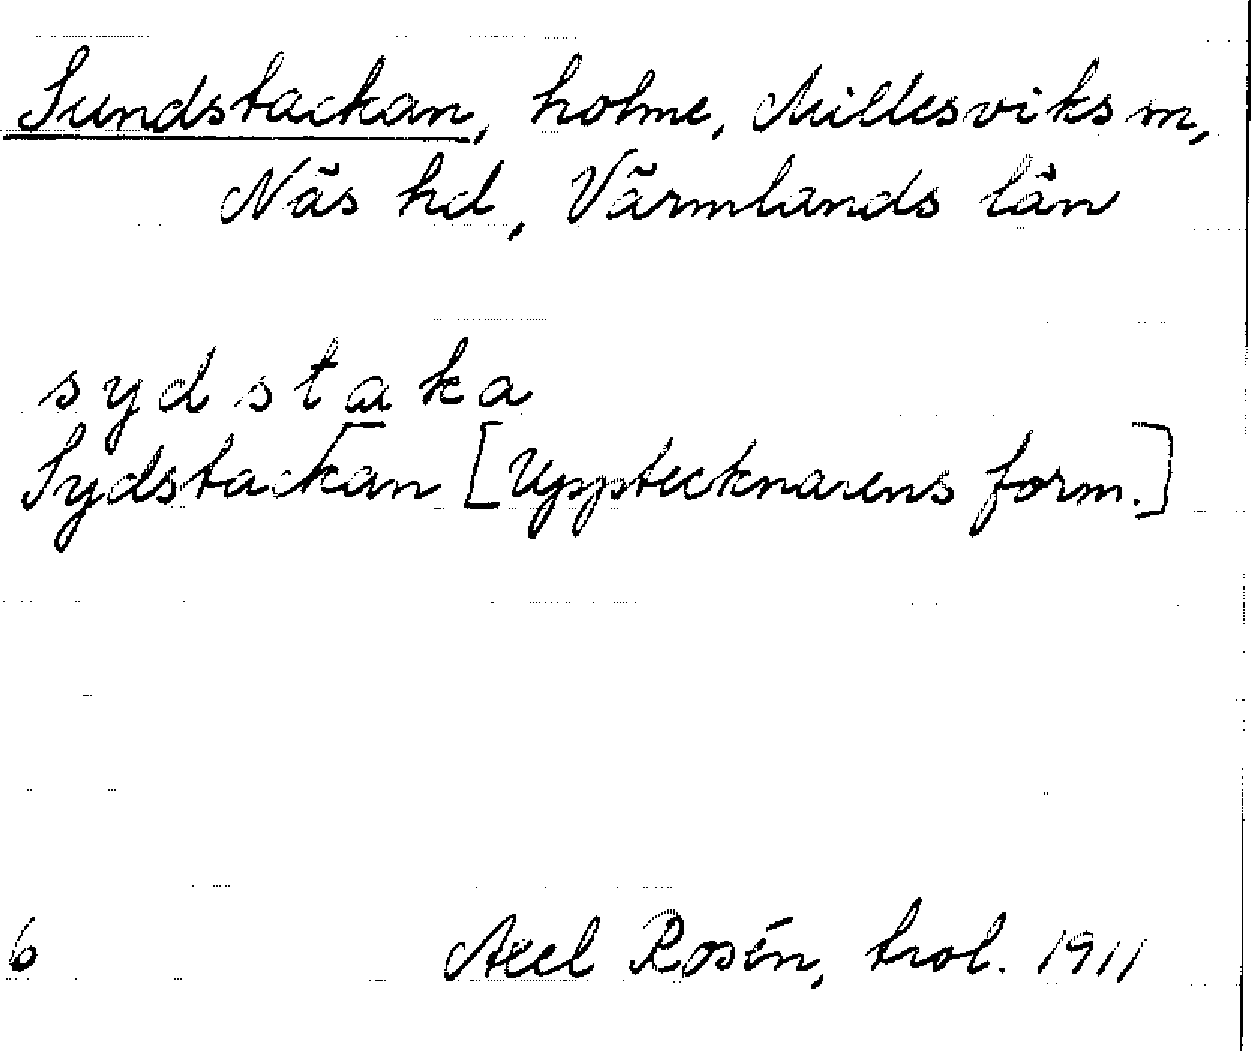 Sundstackan, holme, Millesviks sn,
Näs hd, Värmlands län
sydstaka
Sydstackan [Upptecknarens form.]
6 Axel Rosén, trol. 1911